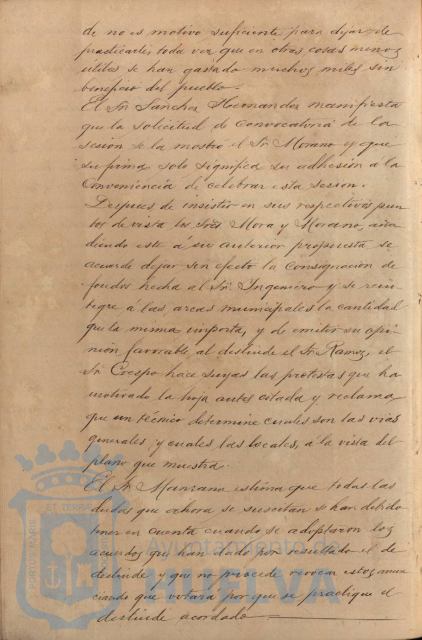 de no es motivo suficiente para dejar de
practicarle, toda vez que en otras cosas menos
útiles se han gastado muchos miles sin
beneficio del pueblo.
El Sr. Sánchez Hernandez manifiesta
que la solicitud de convocatoria de la
sesión se la mostró el Sr. Morano y que
su firma solo significa su adhesión a la
conveniencia de celebrar esta sesion.
Despues de insistir en sus respectivos pun
tos de vista los Sres. Mora y Morano, aña
diendo este a su anterior propuesta se
acuerde dejar sin efecto la consignación de
fondos hecha al Sr. Ingeniero y se rein
tegre á las arcas municipales la cantidad
que la misma importa, y de emitir su opi
nión favorable al deslinde el Sr. Ramos, el
Sr. Crespo hace suyas las protestas que ha
motivado la hoja antes citada y reclama
que un técnico determine cuales son las vias
generales y cuales las locales, á la vista del
plano que muestra.
El Sr. Manzano estima que todas las
dudas que ahora se suscitan se han debido
tener en cuenta cuando se adoptaron los
acuerdos que han dado por resultado el de
deslinde y que no procede revocar estos anun
ciando que votará por que se practique el
deslinde acordado
Ayuntamiento de
HUELVA